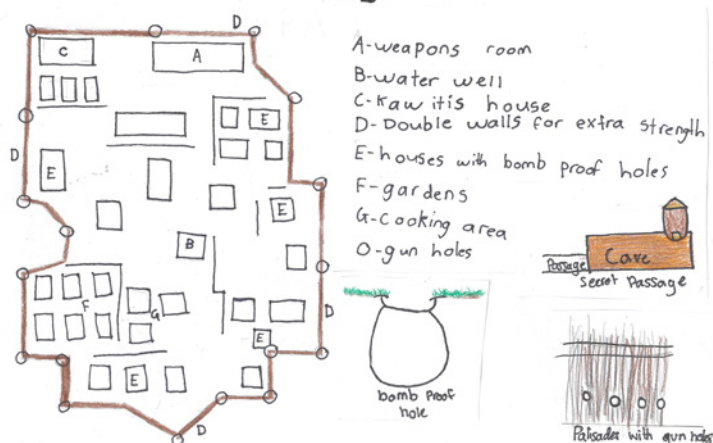 D
C
A
A-weapons room
B-water well
C-Kawitis house
D-Double walls for extra strength
E-houses with bomb proof holes
F-gardens
G-Cooking area
O-gun holes
E
D
E
E
B
F
G
D
E
E
D
Passage
Cave
secret Passage
bomb Proof
hole
Palisades with gun holes